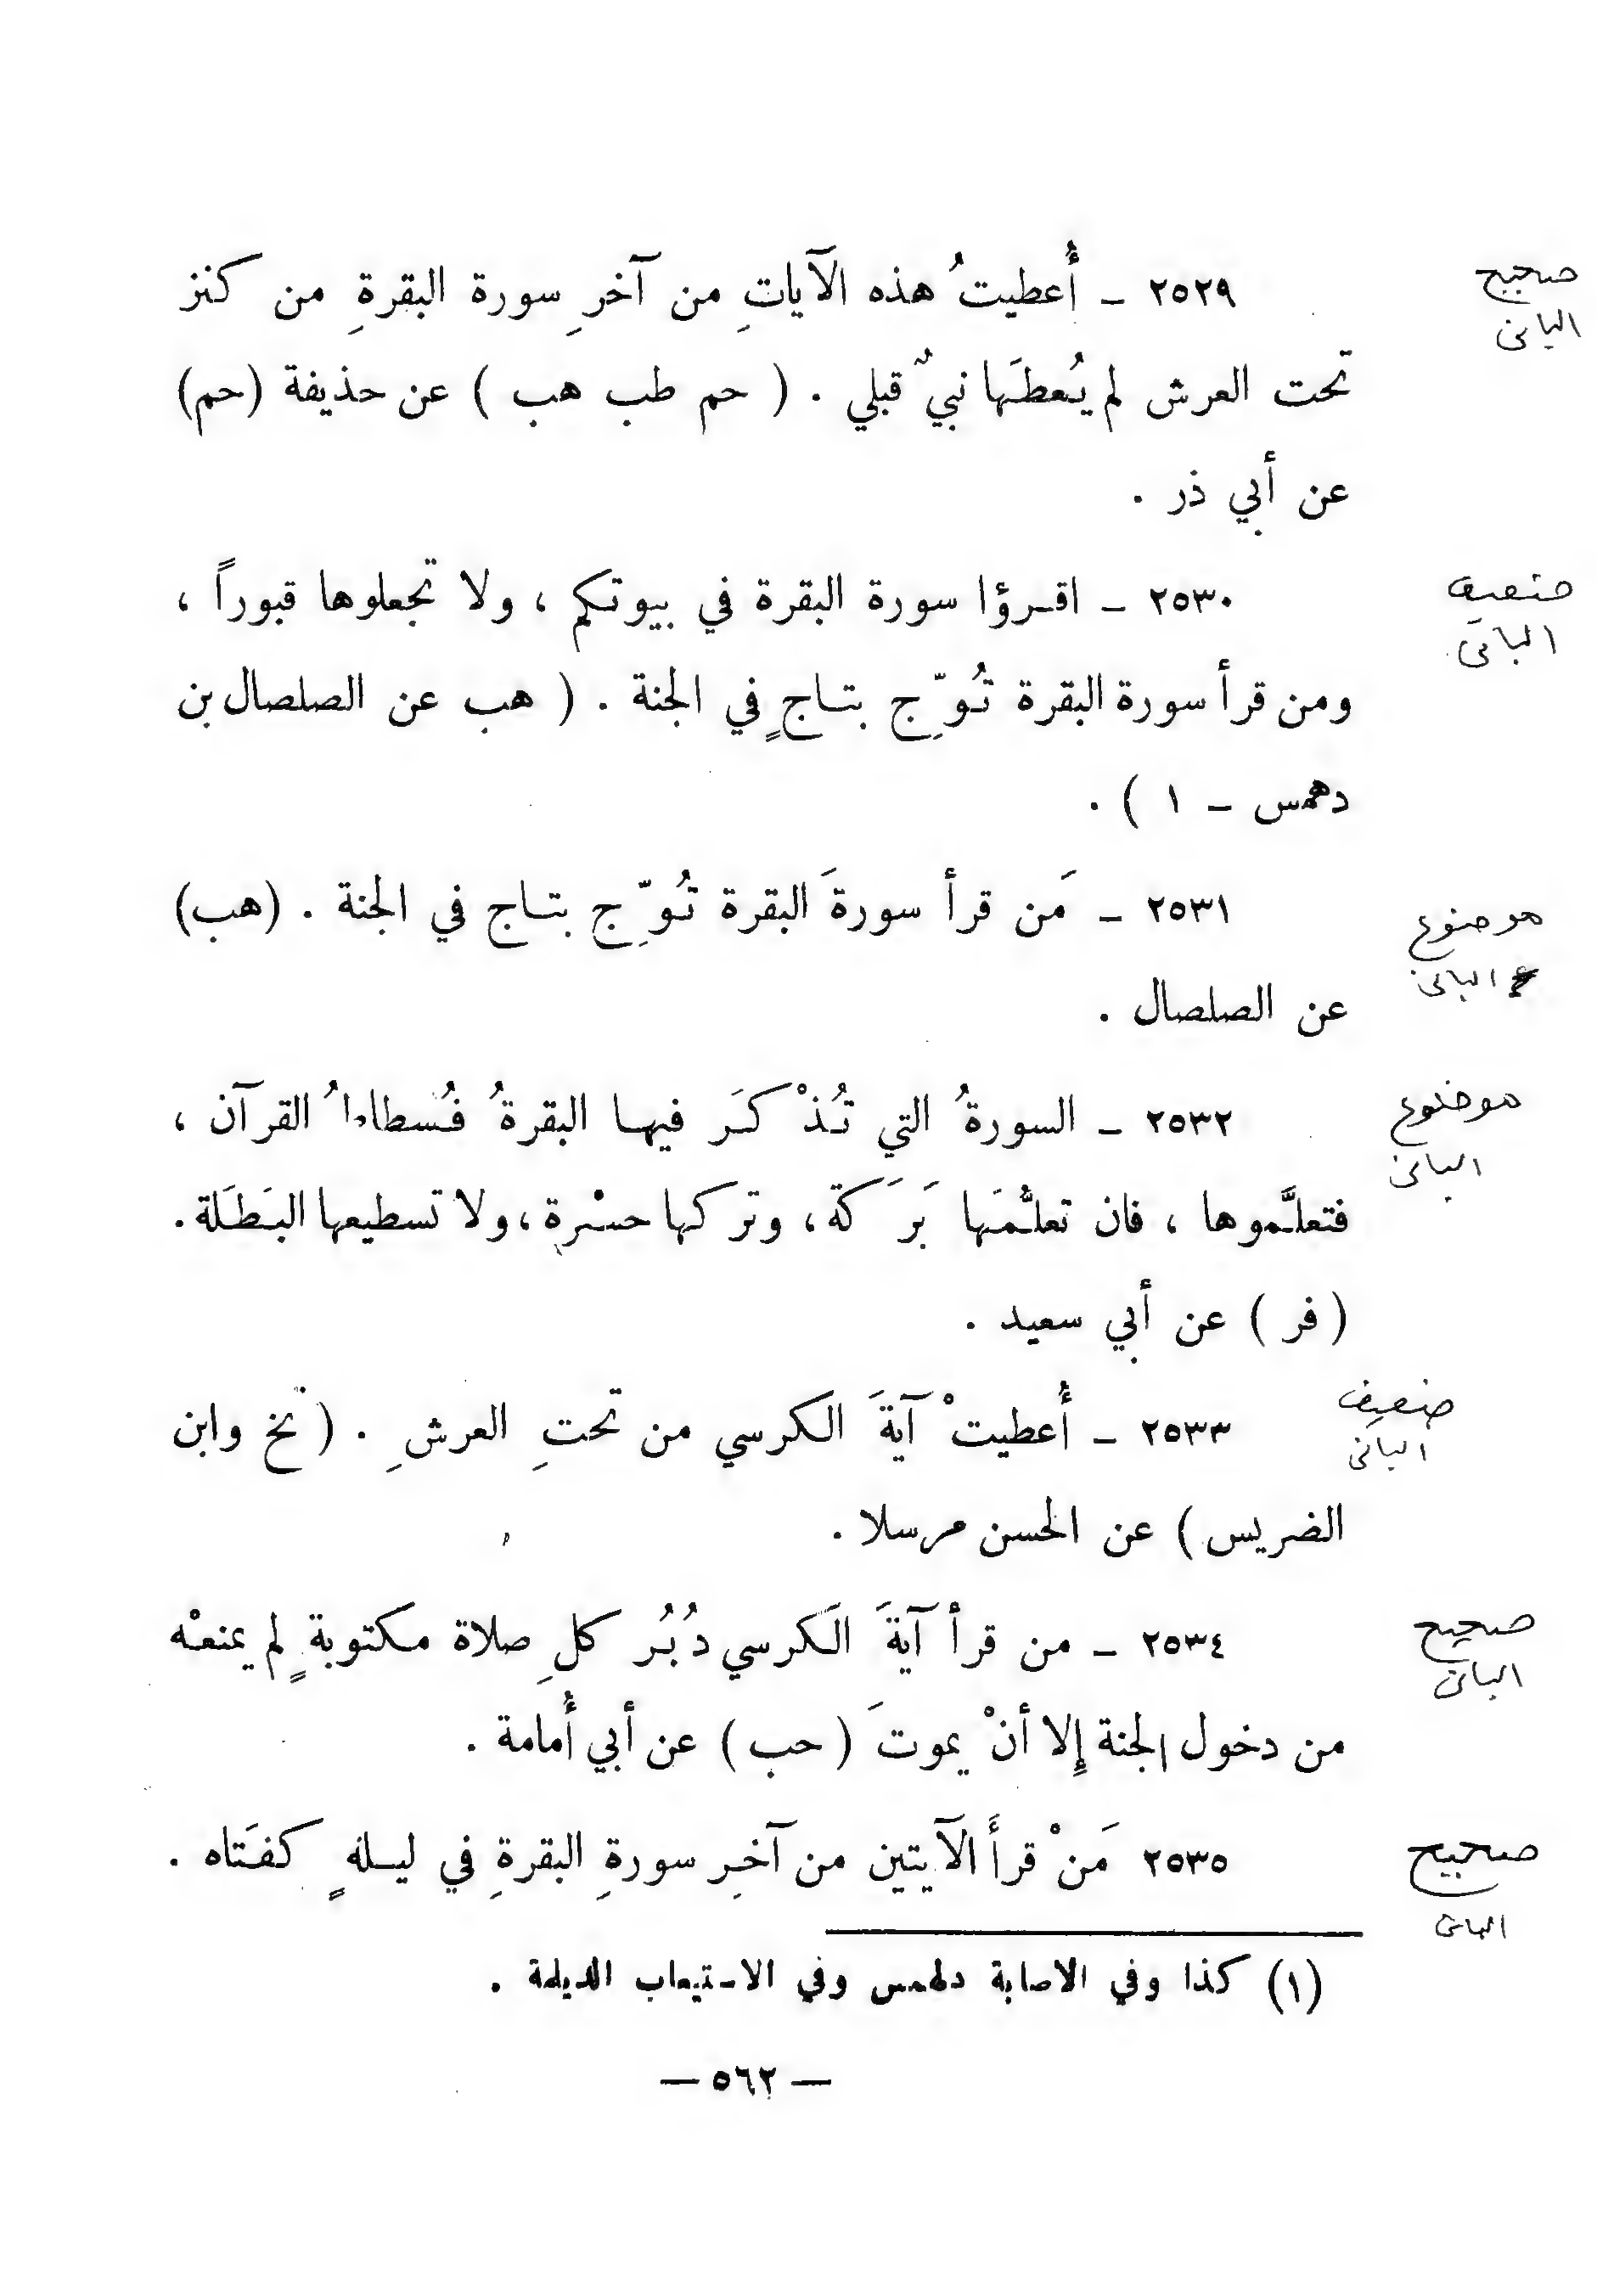 صحيح
البانى
٢٥٢٩ - أُعطيتُ هذه الآياتِ من آخرِ سورة البقرةِ من كنز
تحت العرش لم يُعطَها نبيٌ قبلي . ( حم طب هب ) عن حذيفة (حم)
عن أبي ذر .
ضعيف
البانى
٢٥٣٠ - اقرؤا سورة البقرة في بيوتكم ، ولا تجعلوها قبوراً ،
ومن قرأ سورة البقرة تُوِّج بتاجٍ في الجنة . ( هب عن الصلصال بن
دهمس - ١ ) .
موضوع
البانى
٢٥٣١ - مَن قرأ سورةَ البقرة تُوِّج بتاج في الجنة . (هب)
عن الصلصال .
موضوع
البانى
٢٥٣٢ - السورةُ التي تُذْكَر فيها البقرةُ فُسطاطُ القرآن ،
فتعلَّموها ، فان تعلُّمَها بَرَكَة ، وتركها حسْرة ، ولا تسطيعها البَطَلة .
( فر ) عن أبي سعيد .
ضعيف
البانى
٢٥٣٣ - أُعطيتْ آيةَ الكرسي من تحتِ العرشِ . ( تخ وابن
الضريس ) عن الحسن مرسلا .
صحيح
البانى
٢٥٣٤ - من قرأ آيةَ الكرسي دُبُر كلِ صلاة مكتوبةٍ لم يمنعْه
من دخول الجنة إلا أنْ يموتَ ( حب ) عن أبي أُمامة .
صحيح
البانى
٢٥٣٥ مَنْ قرأَ الآيتين من آخرِ سورةِ البقرةِ في ليلةٍ كفَتاه .
(١) كذا وفي الاصابة دلهمس وفي الاستيعاب الديلمة .
— ٥٦٢ —